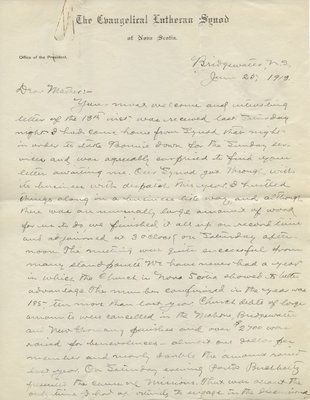 The Evangelical Lutheran Synod
of Nova Scotia.
Office of the President.
Bridgewater N.S.
June 20, 1919.
Dear Mother:-
Your most welcome and interesting
letter of the 13th inst was received last Saturday
night. I had come home from Synod that night
in order to take down for the Sunday ser-
vices and was agreeably surprised to find your
letter awaiting me. Our Synod got through with
its business with despatch this year. I hustled
things along in a business like way and although
there was an unusually large amount of work
for me to do we finished it all up on record time
and adjourned at 3 o'clock on Saturday after-
noon. The meeting was quite successful from
many stand points. We have never had a year
in which the Church in Nova Scotia showed to better
advantage. The number confirmed in the year was
185 - ten more than last year. Church debts of large
amounts were cancelled in the Mahone, Bridgewater
and New Germany parishes and over $2700 was
raised for benevolences - almost one dollar per
member and nearly double the amount raised
last year. On Saturday evening
the cause of Missions. That was about the
only time I had an to engage in the